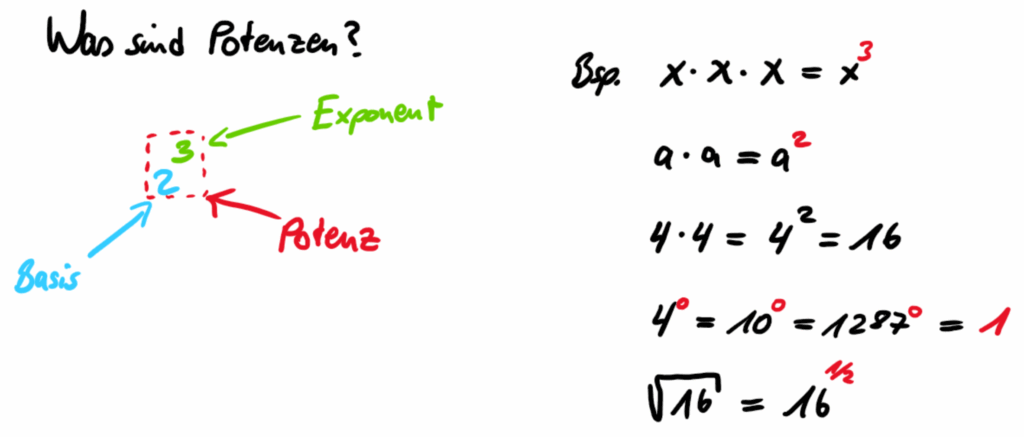 Was sind Potenzen?
Exponent
2³
Potenz
Basis
Bsp. x · x · x = x³
a · a = a²
4 · 4 = 4² = 16
4⁰ = 10⁰ = 1287⁰ = 1
√16 = 16^1/2